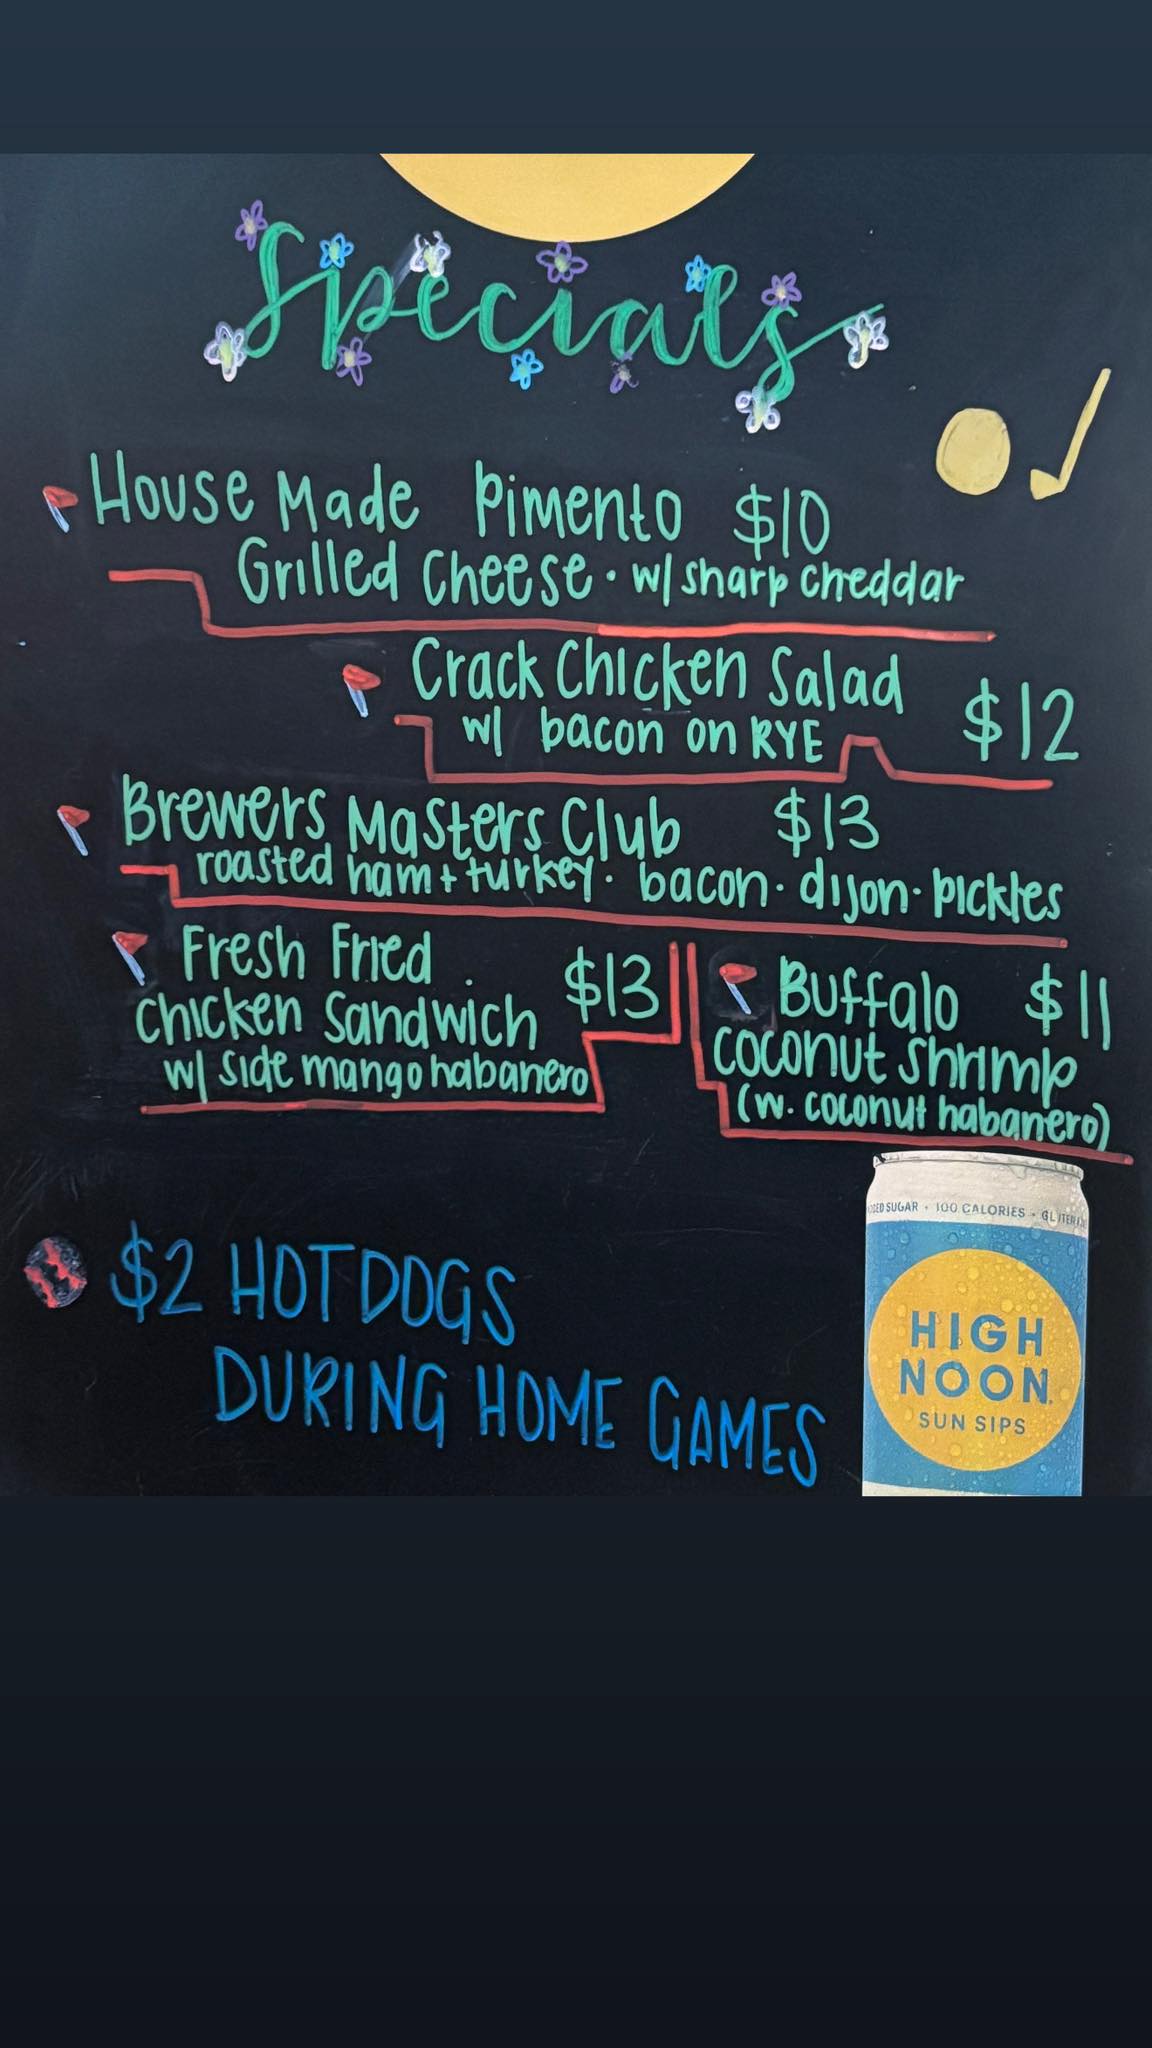 Specials
House Made Pimento $10
Grilled Cheese · w/ sharp cheddar
Crack Chicken Salad $12
w/ bacon on RYE
Brewers Masters Club $13
roasted ham + turkey · bacon · dijon · pickles
Fresh Fried $13
Chicken Sandwich
w/ side mango habanero
Buffalo $11
coconut shrimp
(w. coconut habanero)
$2 HOTDOGS
DURING HOME GAMES
SUGAR · 100 CALORIES ·
HIGH
NOON
SUN SIPS